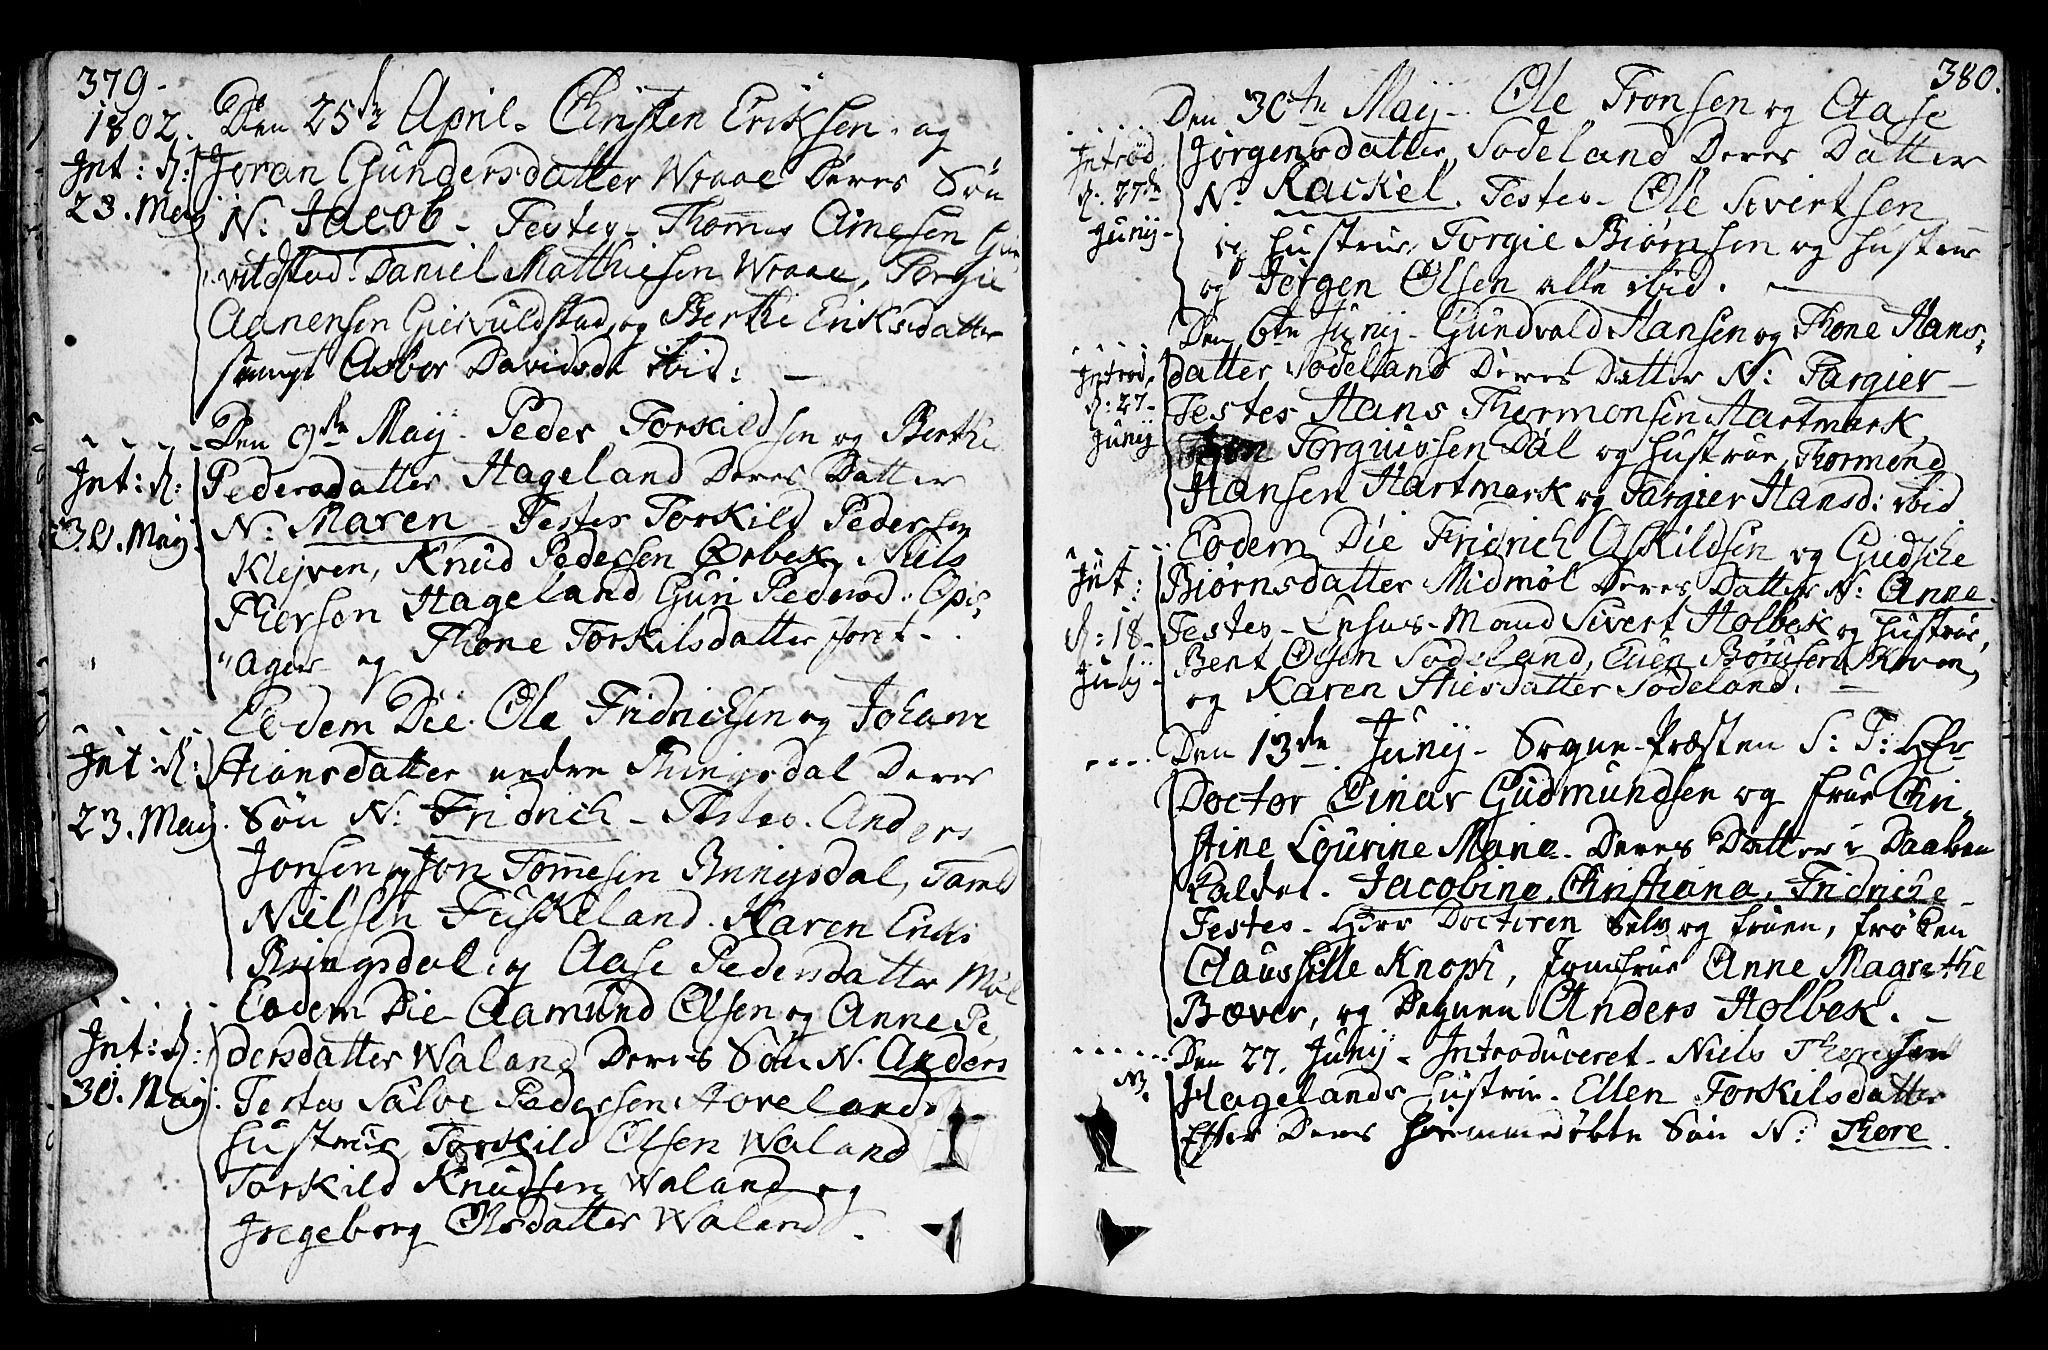 379.
1802.
Den 25de April. Christen Eriksen. og
Int: d:
23. Maij
Joran Gundersdatter Wraae Deres Søn
N: Jacob - Testes - Thomes Arnesen
vildstad. Daniel Matthiesen Wraae, Torgie
Aanensen Giervuldstad og Berthe Eriksdatter
samt Asbor Davidsd: ibid:
Den 9de Maij. Peder Torkildsen og Berthe
Int: d:
30. Maij
Pedersdatter Hageland Deres Datter
N: Maren - Testes Torkild Pedersen
Klejven, Knud Pedersen Ørbek, Niels
Thersen Hageland Guri Pedersd. Ops-
"ager og Thone Torkilsdatter
Eodem Die. Ole Fridrichsen og Johane
Int: d:
23. Maij.
Stiansdatter nedre Ringsdal Deres
Søn N: Fridrich - Testes. Anders
Jonsen og Jon Tomesen Ringsdal, Tarald
Nielsen Fuskeland. Karen Eriks
Ringsdal og Aase Pedersdatter Møl
Eodem Die Aamund Olsen og Anne Pe
Int: d:
30. Maij
dersdatter Waland Deres Søn N. Anders
Testes Salve Pedersen Hoveland
Hustrue, Torkild Olsen Waland
Torkild Knudsen Waland og
Ingeborg Olsdatter Waland.
380.
Den 30te Maij - Ole Tronsen og Aase
Introd.
d. 27de
Junij -
Jørgensdatter Sodeland Deres Datter
N: Rackel. Testes - Ole Sivertsen
og Hustrue, Torgie Biørnsen og Hustrue
og Jørgen Olsen alle ibid.
Den 6te Junij - Gundvald Hansen og Thone Hans-
Introd.
d: 27-
Junij
datter Sodeland Deres Datter N: Targier -
Testes Hans Thormonsen Hartmark
Torguissen Dal og Hustrue, Thormond
Hansen Hartmark og Targier Hansd: ibid
Eodem Die Fridrich Askildsen og Gudsche
Int:
d: 18-
Julij -
Biørnsdatter Midmøl Deres Datter N: Anne.
Testes - Lehns-Mand Sivert Holbek og Hustrue,
Bent Olsen Sodeland, Euen Børusen
og Karen Stiesdatter Sodeland.
Den 13de Junij - Sogne-Præsten S: T: Her
Doctor Einar Gudmundsen og Frue Chri-
stine Lourine Marie. Deres Datter i Daaben
kaldet. Jacobina, Christiana, Fridriche
Testes. Herr Doctoren Selv og Fruen, Frøken
Claussille Knoph, Jomfrue Anne Magrethe
Bæver, og Degnen Anders Holbek. -
Den 27. Junij - Introduceret - Niels Thoresen
NB.
Hagelands Hustrue. Ellen Torkilsdatter
Efter Deres Hiemmedøbte Søn N: Thore.